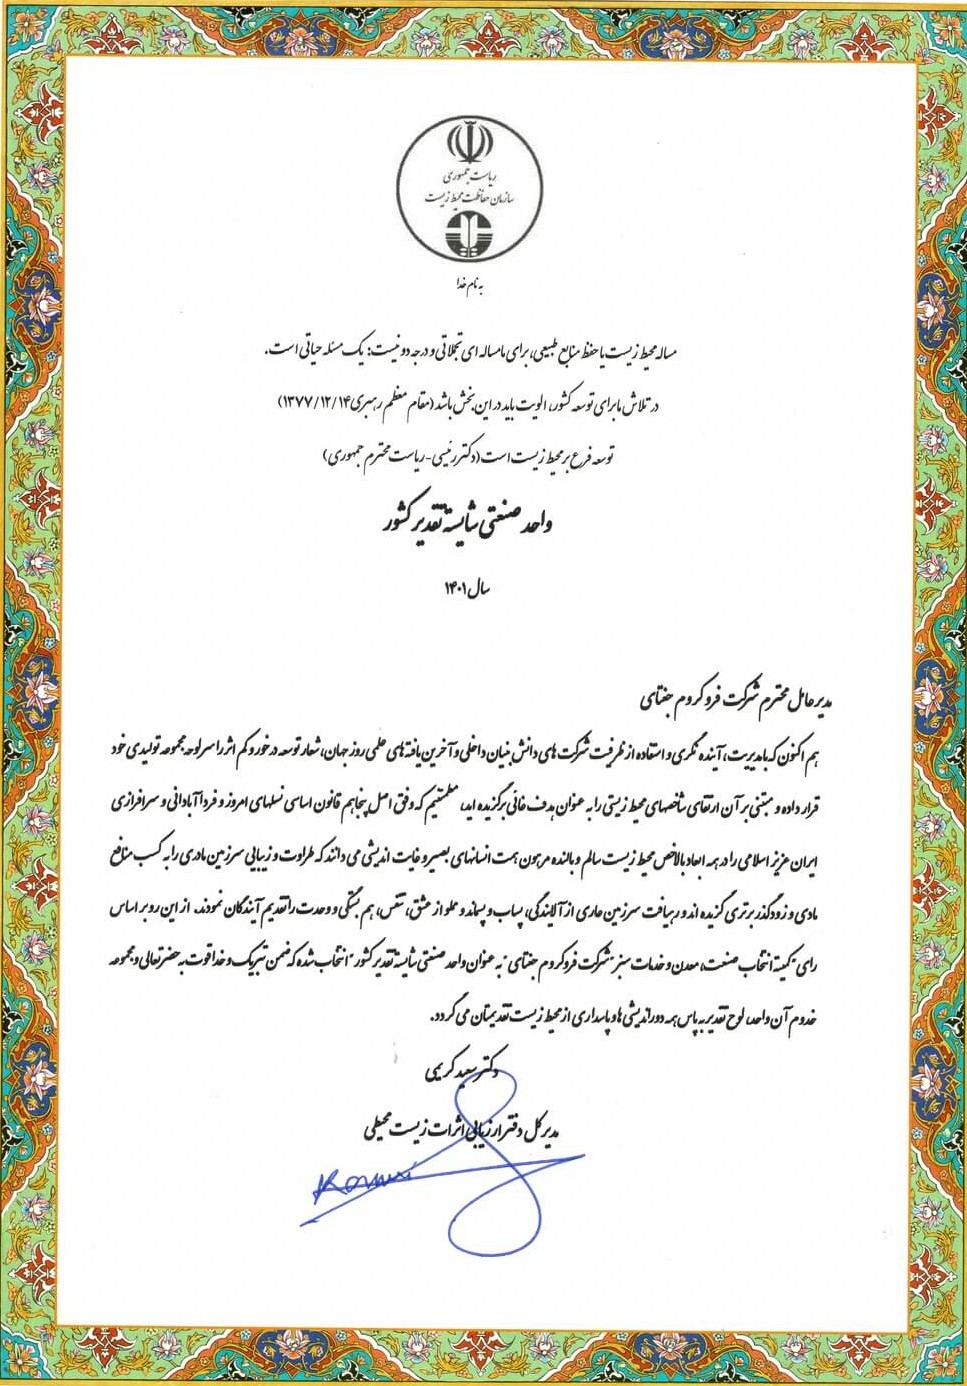 ریاست جمهوری
سازمان حفاظت محیط زیست
به نام خدا
مساله محیط زیست یا حفظ منابع طبیعی، برای ما مساله ای تجملاتی و درجه دو نیست: یک مسئله حیاتی است.
در تلاش ما برای توسعه کشور، الویت باید در این بخش باشد (مقام معظم رهبری ۱۳۷۷/۱۲/۱۴)
توسعه فرع بر محیط زیست است (دکتر رئیسی-ریاست محترم جمهوری)
واحد صنعتی شایسته تقدیر کشور
سال ۱۴۰۱
مدیر عامل محترم شرکت فرو کروم جغتای
هم اکنون که با مدیریت، آینده نگری و استفاده از ظرفیت شرکت های دانش بنیان داخلی و آخرین یافته های علمی روز جهان، شعار توسعه درخور و کم اثر را سر لوحه مجموعه تولیدی خود
قرار داده و مبتنی بر آن ارتقای شاخصهای محیط زیستی را به عنوان هدف غائی برگزیده اید، مطمئنیم که وفق اصل پنجاهم قانون اساسی نسلهای امروز و فردا آبادانی و سرافرازی
ایران عزیز اسلامی را در همه ابعاد بالاخص محیط زیست سالم و بالنده مرهون همت انسانهای بصیر و غایت اندیشی می دانند که طراوت و زیبایی سرزمین مادری را به کسب منافع
مادی و زودگذر برتری گزیده اند و رهیافت سرزمین عاری از آلایندگی، پساب و پسماند و مملو از عشق، تنفس، هم بستگی و وحدت را تقدیم آیندگان نمودند. از این رو بر اساس
رای "کمیته انتخاب صنعت، معدن و خدمات سبز" شرکت فروکروم جغتای "به عنوان واحد صنعتی شایسته تقدیر کشور" انتخاب شده که ضمن تبریک و خداقوت به حضرتعالی و مجموعه
خدوم آن واحد، لوح تقدیر به پاس همه دوراندیشی ها و پاسداری از محیط زیست تقدیمتان می گردد.
دکتر سعید کریمی
مدیر کل دفتر ارزیابی اثرات زیست محیطی
Karimi